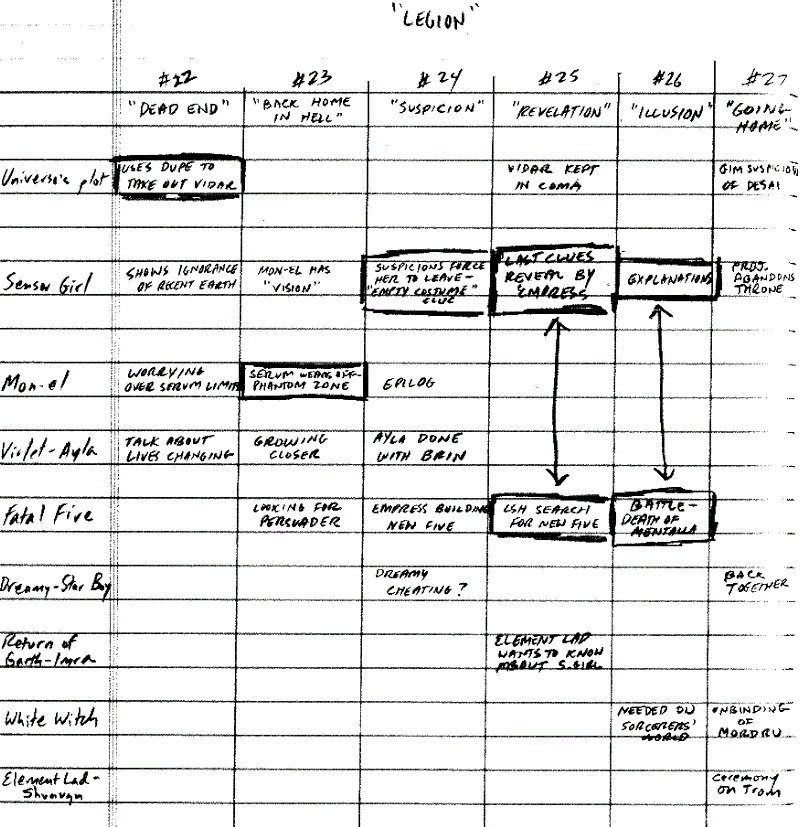 "LEGION"
#22 #23 #24 #25 #26 #27
"DEAD END" "BACK HOME IN HELL" "SUSPICION" "REVELATION" "ILLUSION" "GOING HOME"
Universo's plot
USES DUPE TO
TAKE OUT VIDAR
VIDAR KEPT
IN COMA
GIM SUSPICIOUS
OF DESAI
Sensor Girl
SHOWS IGNORANCE
OF RECENT EARTH
MON-EL HAS
"VISION"
SUSPICIONS FORCE
HER TO LEAVE-
"EMPTY COSTUME"
CLUE
LAST CLUES
REVEAL BY
EMPRESS
EXPLANATIONS
PROJ.
ABANDONS
THRONE
Mon-el
WORRYING
OVER SERUM LIMIT
SERUM WEARS OFF-
PHANTOM ZONE
EPILOG
Violet-Ayla
TALK ABOUT
LIVES CHANGING
GROWING
CLOSER
AYLA DONE
WITH BRIN
Fatal Five
LOOKING FOR
PERSUADER
EMPRESS BUILDING
NEW FIVE
LSH SEARCH
FOR NEW FIVE
BATTLE-
DEATH OF
MENTALLA
Dreamy-Star Boy
DREAMY
CHEATING?
BACK
TOGETHER
Return of
Garth-Imra
ELEMENT LAD
WANTS TO KNOW
ABOUT S.GIRL
White Witch
NEEDED ON
SORCERERS'
WORLD
UNBINDING
OF
MORDRU
Element Lad-
Shvaugn
Ceremony
on Trom